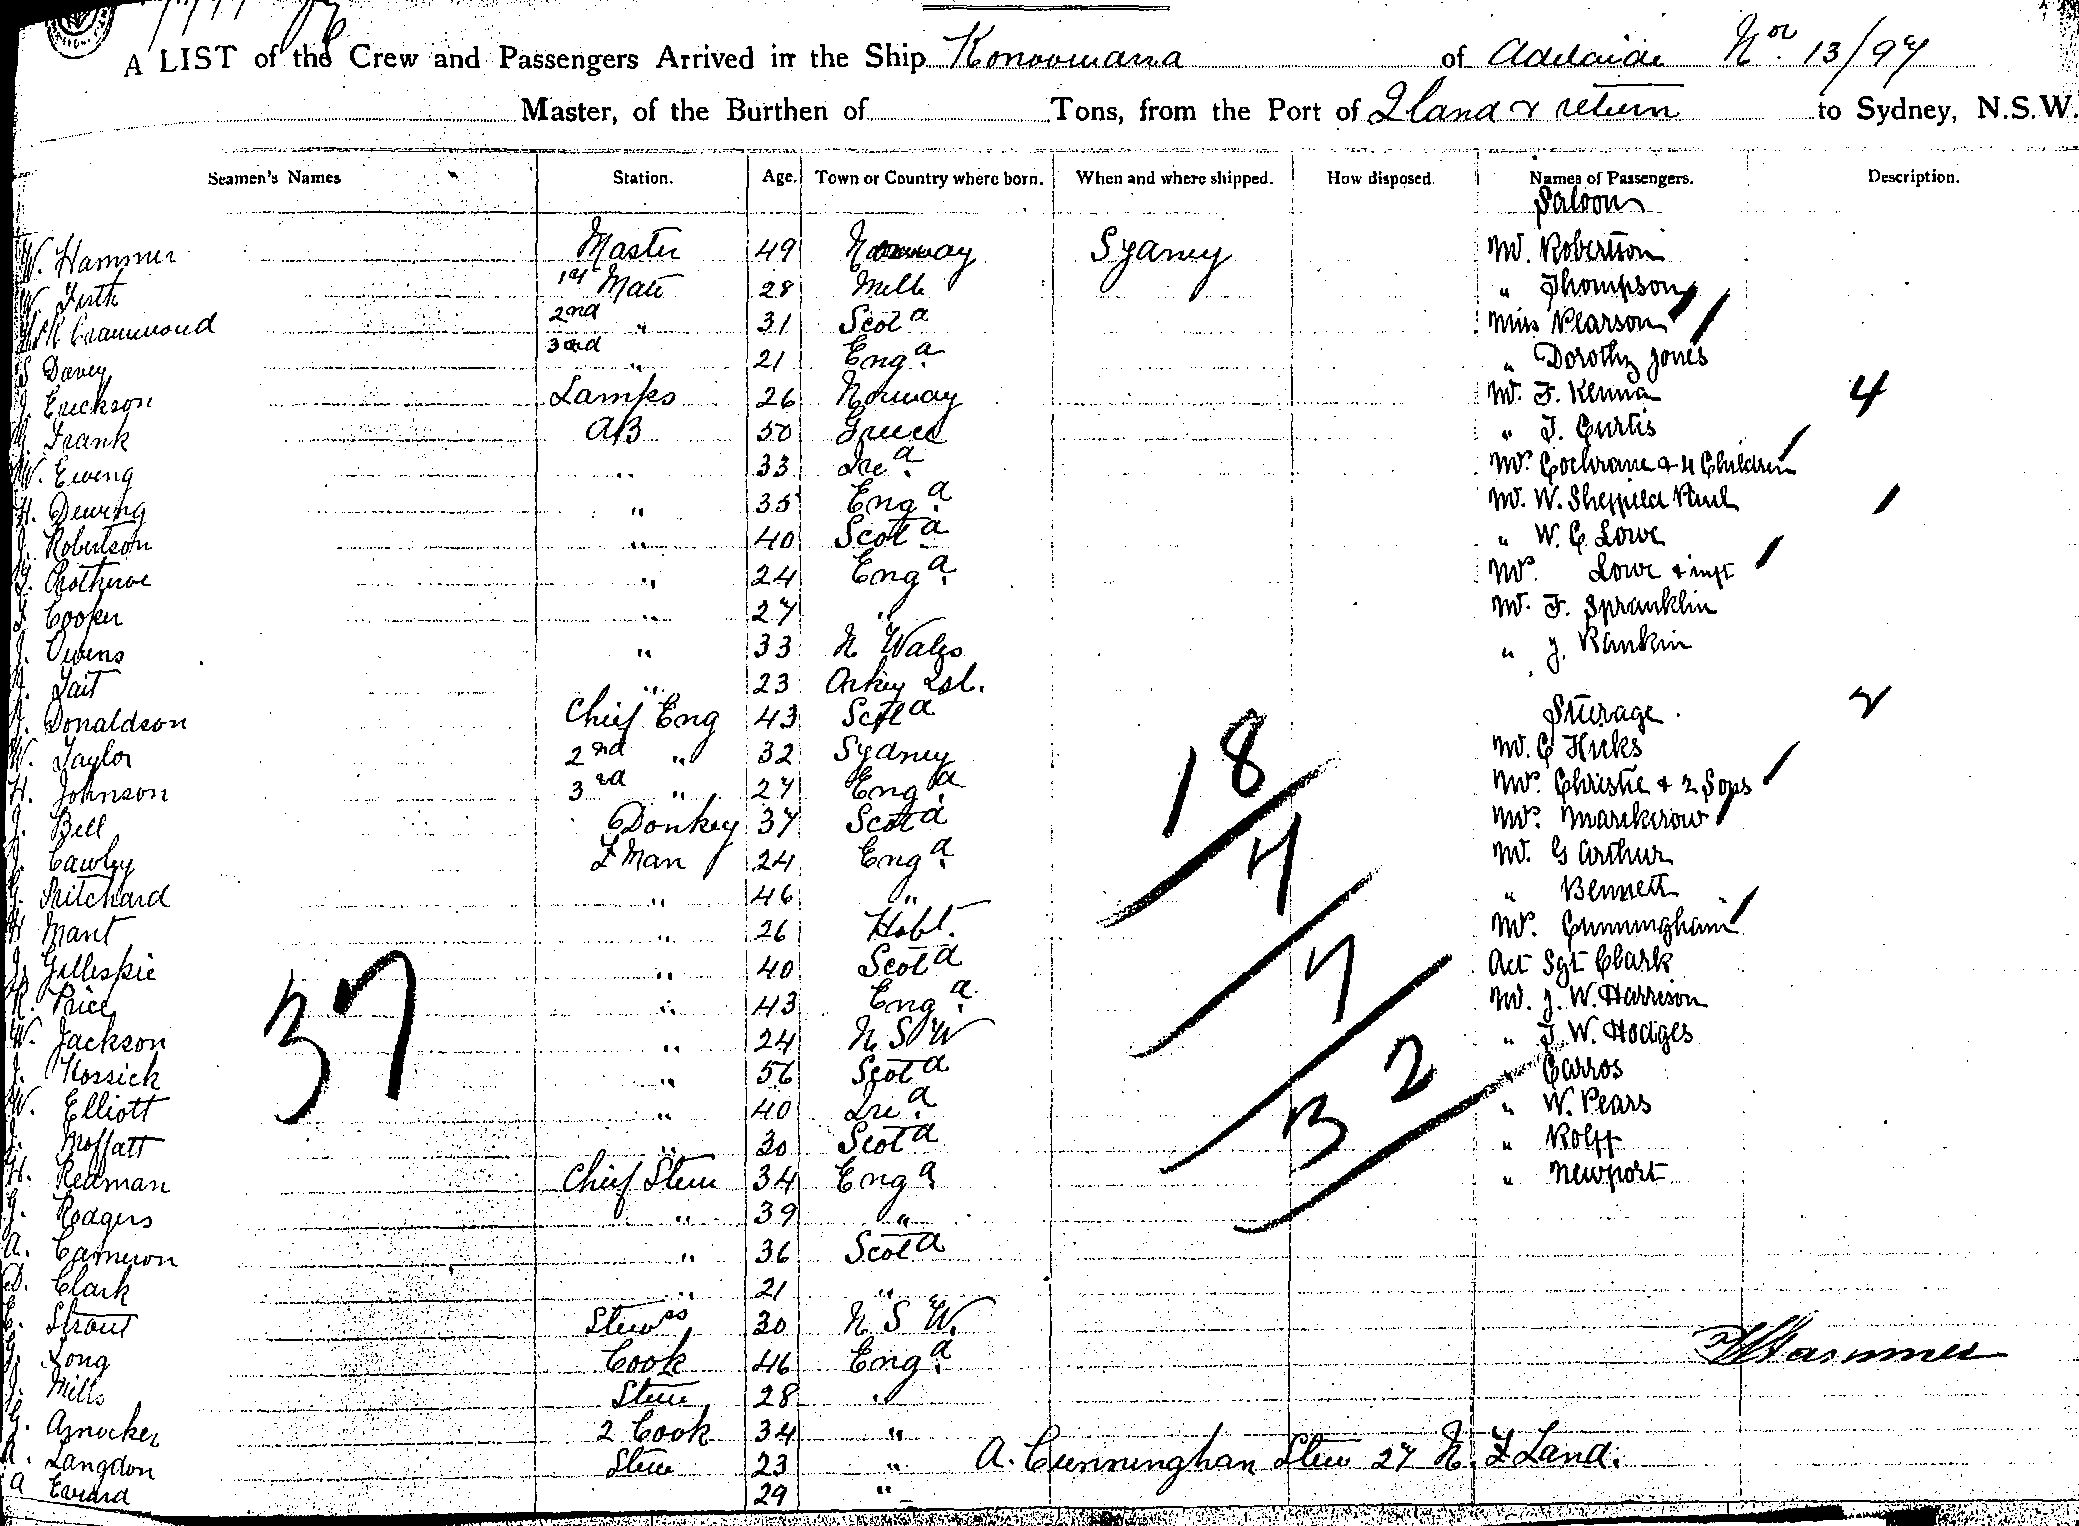 A LIST of the Crew and Passengers Arrived in the Ship Konoowarra of Adelaide Nov 13/97
Master, of the Burthen of Tons, from the Port of Qland & return to Sydney, N.S.W.
Seamen's Names Station. Age. Town or Country where born. When and where shipped. How disposed. Names of Passengers. Description.
Saloon
W. Hammer Master 49 Norway Sydney Mr. Robertson
W. Firth 1st Mate 28 Melb " Thompson
Crammond 2nd " 31 Scotd Miss Pearson
S Davey 3rd " 21 Engd " Dorothy Jones
J. Erickson Lamps 26 Norway Mr. F. Kenna 4
Frank AB 50 Greece " J. Curtis
W. Ewing " 33 Ired. Mrs Cochrane & 4 Children
H. Dewing " 35 Engd. Mr. W. Sheffield 1
J. Robertson " 40 Scotd " W. C. Lowe
" 24 Engd. Mrs. Lowe & inft
Cooper " 27 " Mr. F. Spranklin
J. Owens " 33 N Wales " J. Rankin
J. Tait " 23 Orkey Isl.
Donaldson Chief Eng 43 Scotd Steerage 2
W. Taylor 2nd " 32 Sydney Mr. C Hicks
H. Johnson 3rd " 27 Engd Mrs Christie & 2 Sons
J. Bell Donkey 37 Scotd Mrs.
J. Cawley F Man 24 Engd. Mr. G Arthur
Pritchard " 46 " " Bennett
H Mant " 26 Hobt. Mrs. Cunningham
J. Gillespie " 40 Scotd Act Sgt Clark
R. Price " 43 Engd. Mr. J. W. Harrison
W. Jackson " 24 N S W " J. W. Hodges
J. Kossick " 56 Scotd " Carros
W. Elliott " 40 Ired. " W. Pears
Moffatt " 30 Scotd " Rolff
H. Redman Chief Stew 34 Engd " Newport
J. Rodgers " 39 "
A. Cameron " 36 Scotd
D. Clark " 21 "
E. Strout Stewss 30 N S W.
Long Cook 46 Engd.
J. Mills Stew 28 "
G. 2 Cook 34 "
Langdon Stew 23 " A. Cunninghan Stew 27 N. Z Land.
A Evrard 29 "
37
18
4
7
3 2
W Hammer